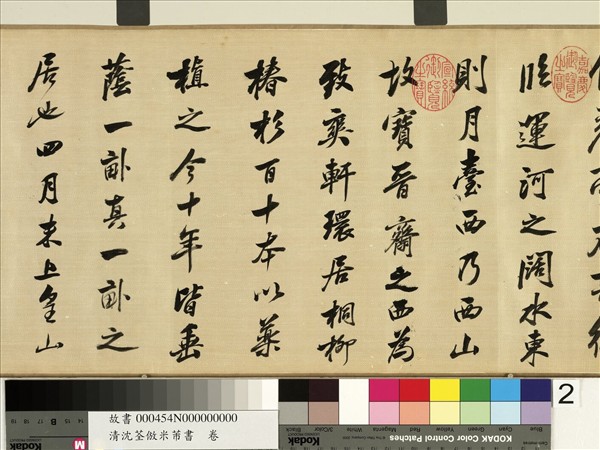 臨運河之闊水東
則月臺西乃西山
故寶晉齋之西為
致爽軒環居桐柳
椿杉百十本以藥
植之今十年皆垂
蔭一畝真一畝之
居也四月末上皇山
嘉慶御覽之寶
宣統御覽之寶
故書 000454N000000000
清沈荃倣米芾書 卷
2
KODAK Color Control Patches
Blue Cyan Green Yellow Red Magenta White 3/Color Black
Kodak
Kodak
14 15 B 17 18 19
M